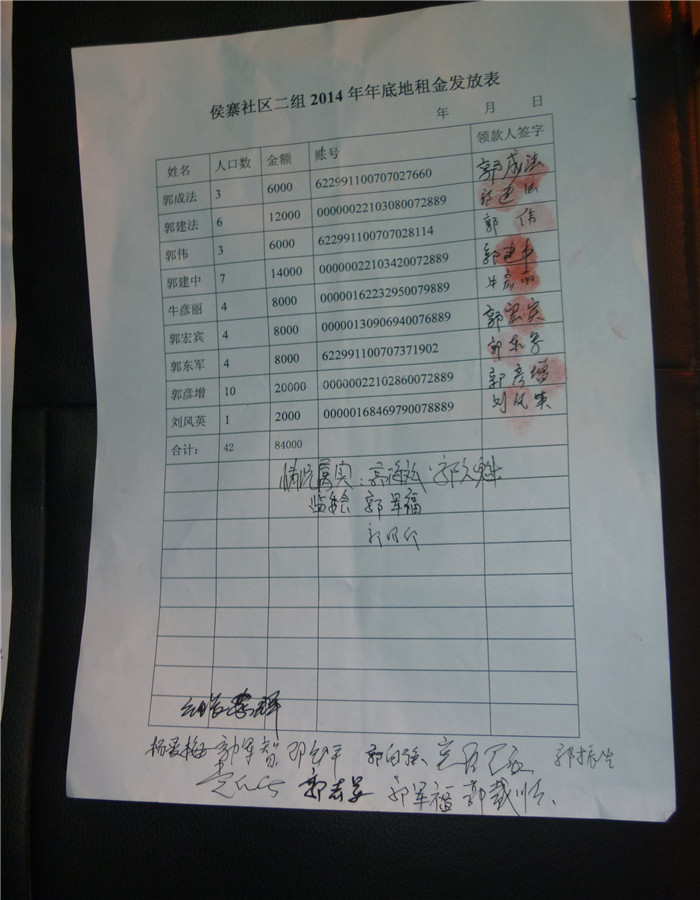 侯寨社区二组2014年年底地租金发放表
年 月 日
姓名 人口数 金额 账号 领款人签字
郭成法 3 6000 622991100707027660 郭成法
郭建法 6 12000 00000022103080072889 郭建法
郭伟 3 6000 622991100707028114 郭伟
郭建中 7 14000 00000022103420072889 郭建中
牛彦丽 4 8000 00000162232950079889 牛彦丽
郭宏宾 4 8000 00000130906940076889 郭宏宾
郭东军 4 8000 622991100707371902 郭东军
郭彦增 10 20000 00000022102860072889 郭彦增
刘风英 1 2000 00000168469790078889 刘风英
合计: 42 84000
情况属实:
监委会 郭军福
杨爱梅 郭军智 郭向强 郭振生
郭志军 郭军福